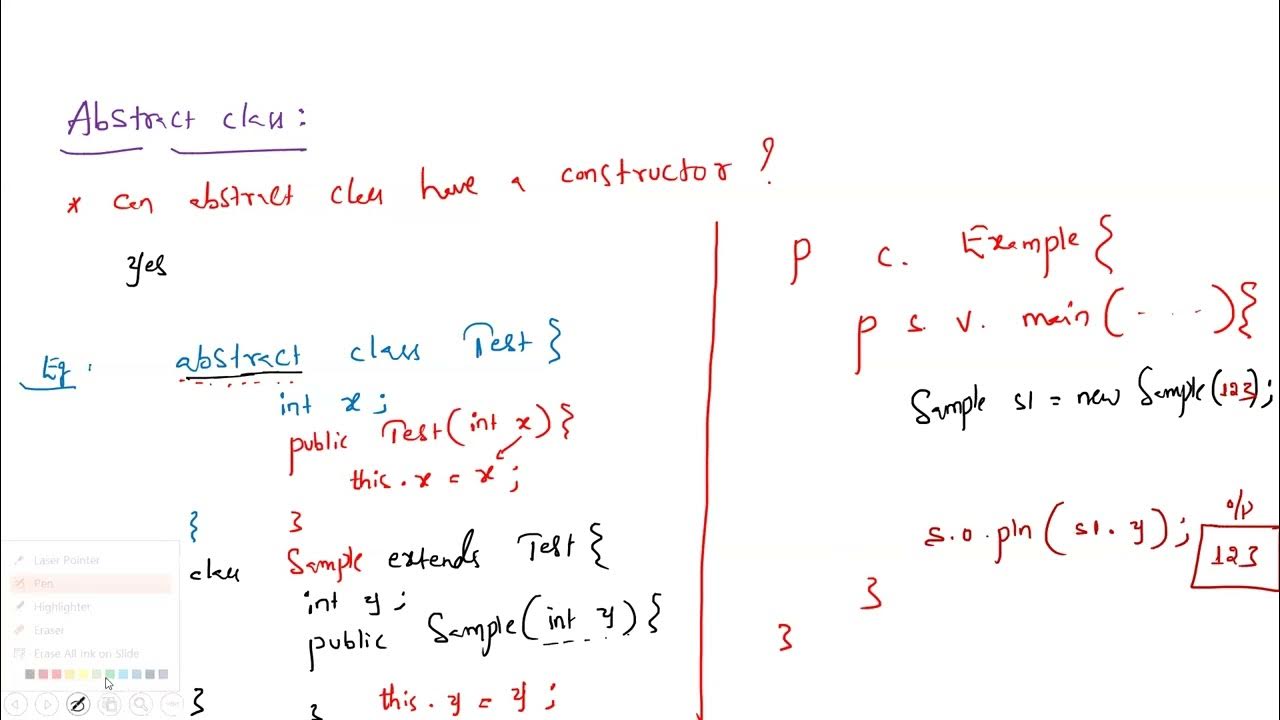 Abstract class:
* can abstract class have a constructor ?
Yes
Eg: abstract class Test {
int x;
public Test(int x) {
this.x = x;
}
}
class Sample extends Test {
int y;
public Sample(int y) {
this.y = y;
}
}
p c. Example {
p s. v. main (....) {
Sample s1 = new Sample(123);
s.o.pln (s1.y);
o/p
123
}
}
Laser Pointer
Pen
Highlighter
Eraser
Erase All Ink on Slide